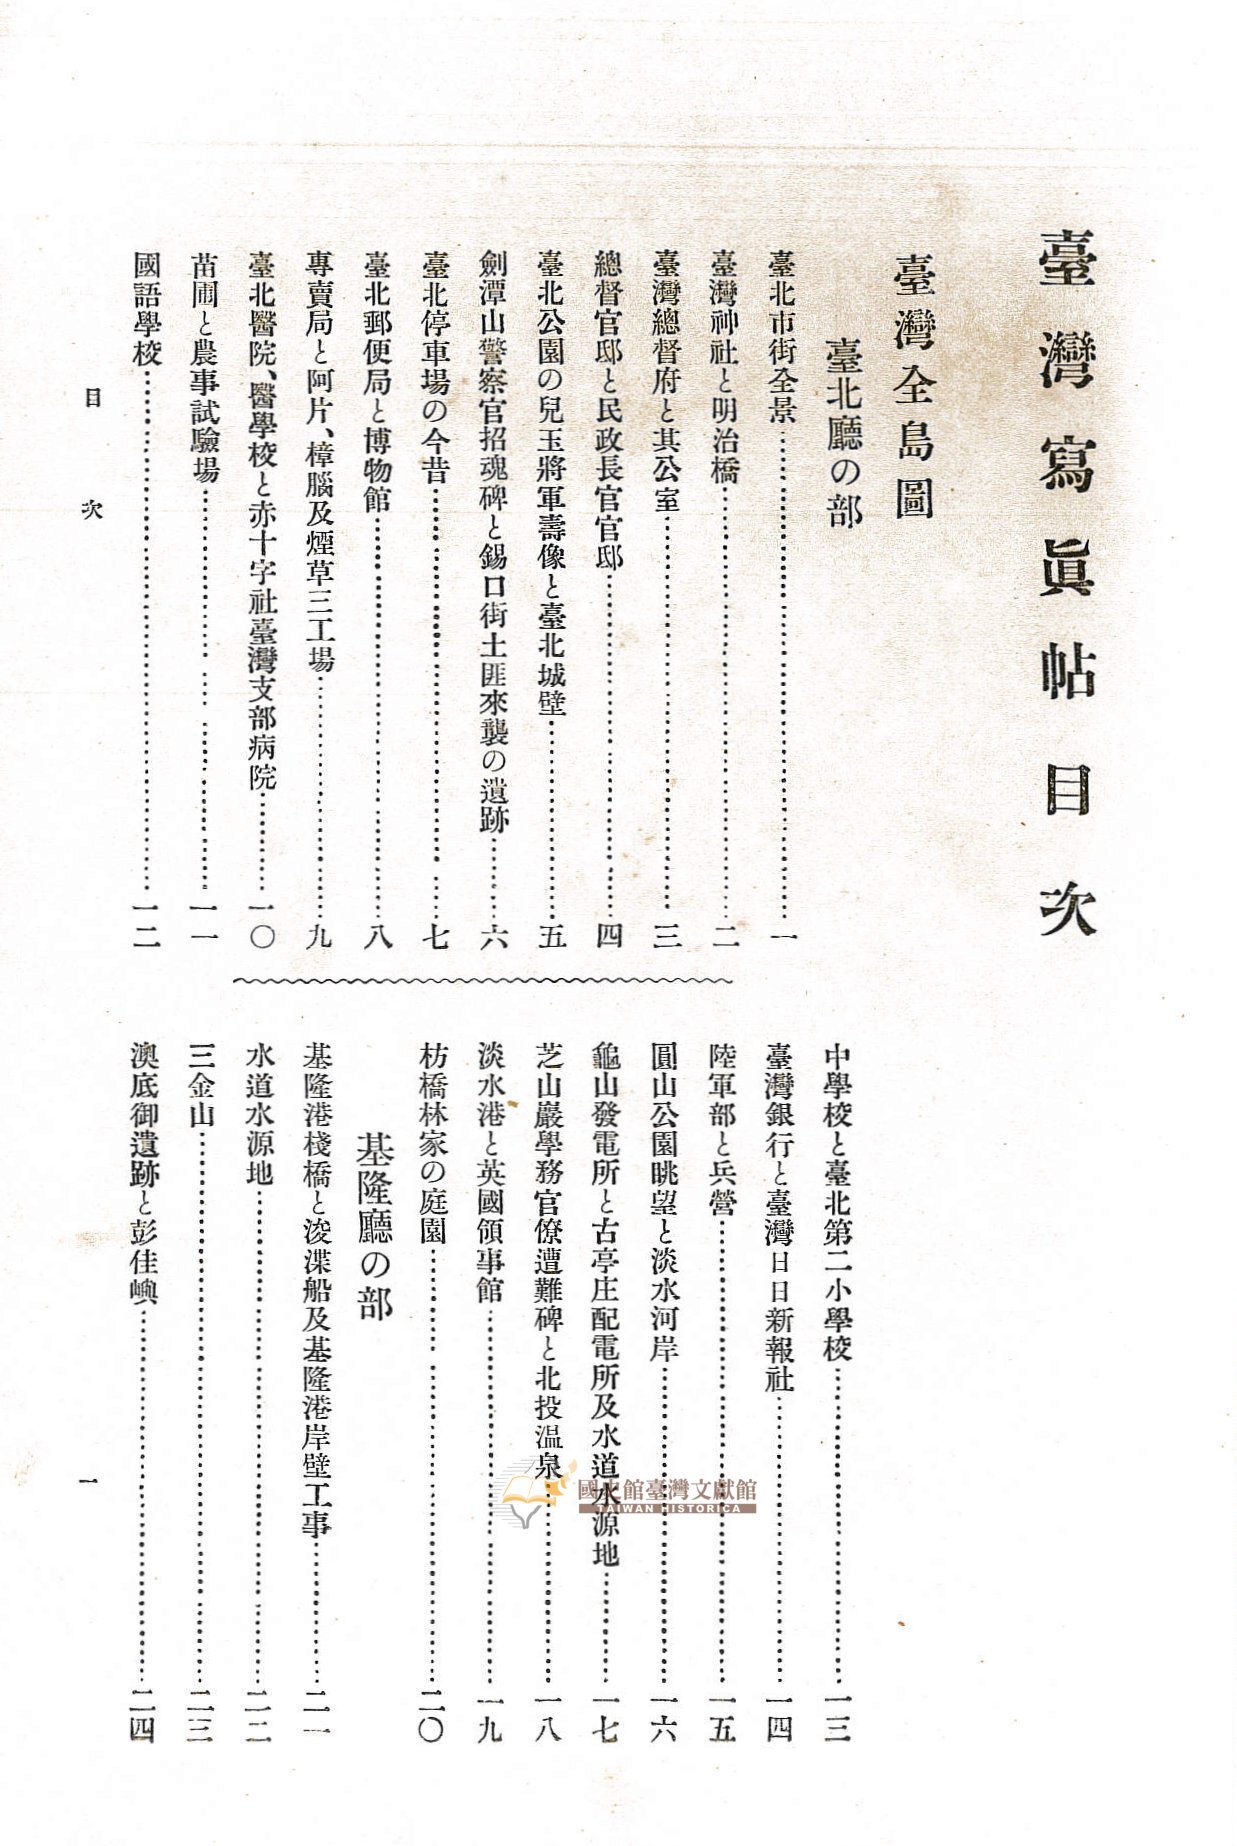 臺灣寫眞帖目次
臺灣全島圖
臺北廳の部
臺北市街全景……一
臺灣神社と明治橋……二
臺灣總督府と其公室……三
總督官邸と民政長官官邸……四
臺北公園の兒玉將軍壽像と臺北城壁……五
劍潭山警察官招魂碑と錫口街土匪來襲の遺跡……六
臺北停車場の今昔……七
臺北郵便局と博物館……八
專賣局と阿片、樟腦及煙草三工場……九
臺北醫院、醫學校と赤十字社臺灣支部病院……一〇
苗圃と農事試驗場……一一
國語學校……一二
中學校と臺北第二小學校……一三
臺灣銀行と臺灣日日新報社……一四
陸軍部と兵營……一五
圓山公園眺望と淡水河岸……一六
龜山發電所と古亭庄配電所及水道水源地……一七
芝山巖學務官僚遭難碑と北投温泉……一八
淡水港と英國領事館……一九
枋橋林家の庭園……二〇
基隆廳の部
基隆港棧橋と浚渫船及基隆港岸壁工事……二一
水道水源地……二二
三金山……二三
澳底御遺跡と彭佳嶼……二四
目次
一
國史館臺灣文獻館
TAIWAN HISTORICA